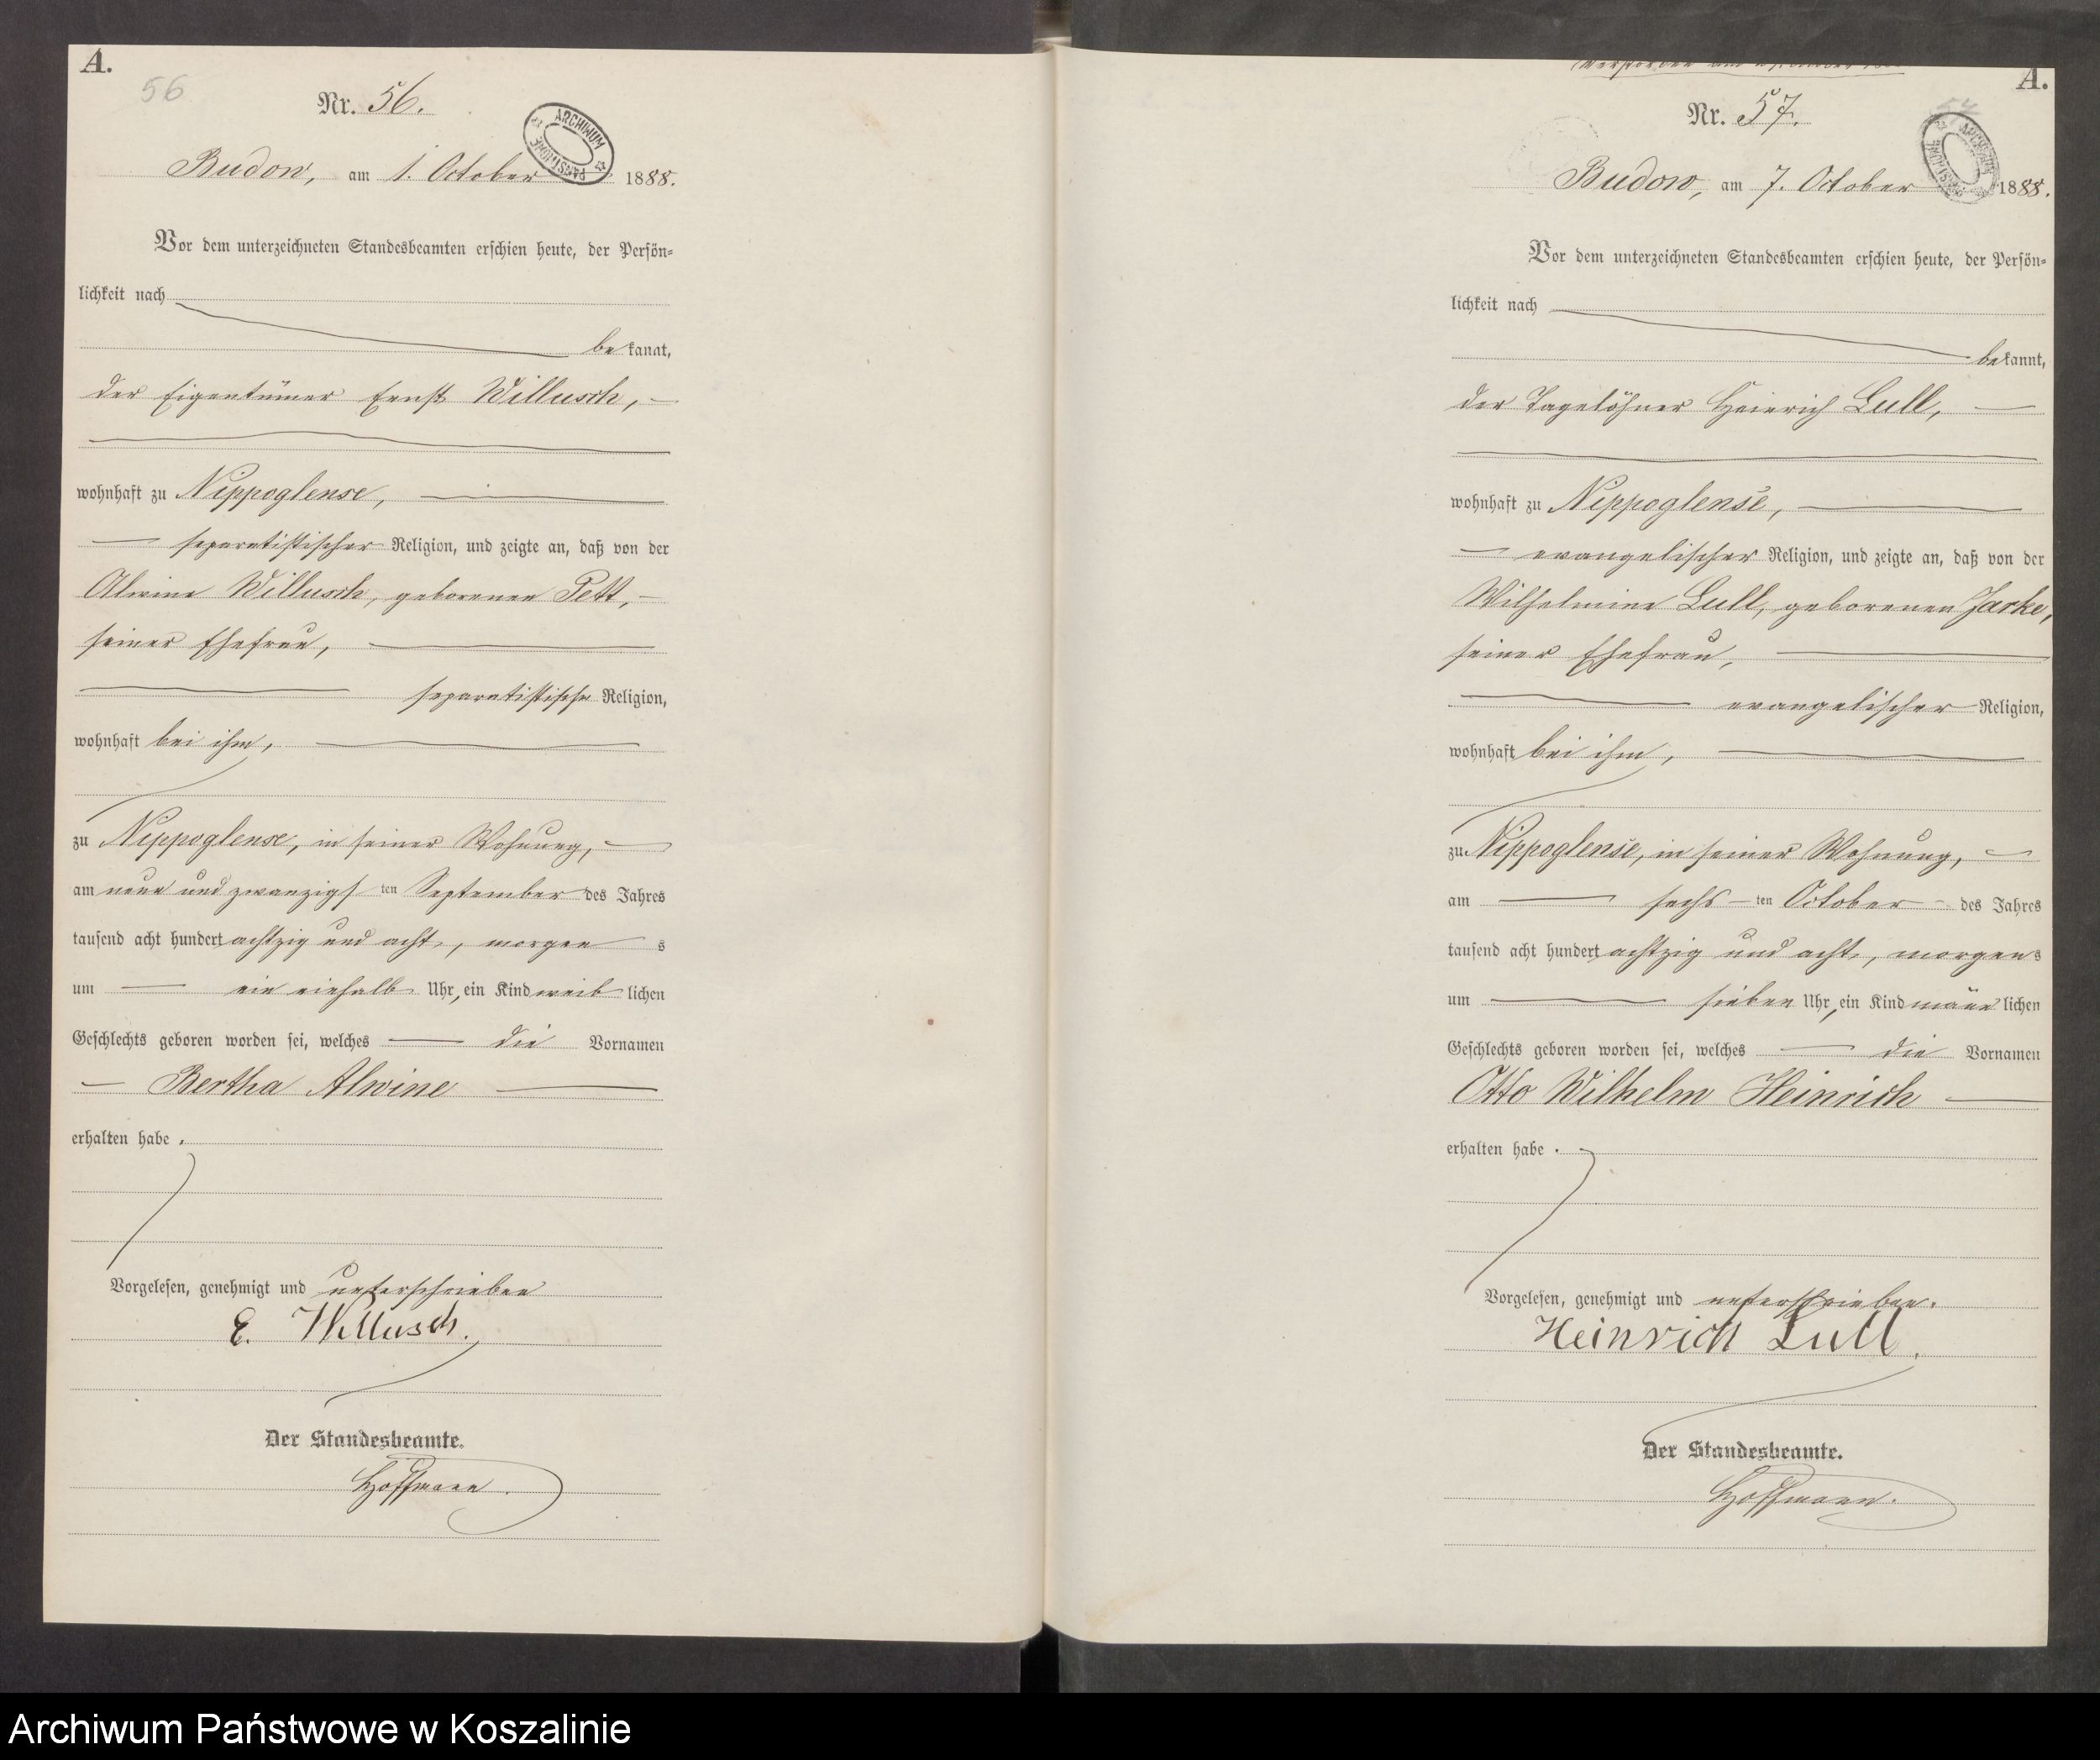 A.
56
Nr. 56.
ARCHIWUM PAŃSTWOWE
Budow, am 1. October 1888.
Vor dem unterzeichneten Standesbeamten erschien heute, der Persön=
lichkeit nach
bekannt,
der Eigentümer Ernst Willusch,
wohnhaft zu Nippoglense,
separatistischer Religion, und zeigte an, daß von der
Alwine Willusch, geborenen Pett,
seiner Ehefrau,
separatistische Religion,
wohnhaft bei ihm,
zu Nippoglense, in seiner Wohnung,
am neun und zwanzigsten September des Jahres
tausend acht hundert achtzig und acht, morgens
um ein einhalb Uhr, ein Kind weiblichen
Geschlechts geboren worden sei, welches die Vornamen
Bertha Alwine
erhalten habe.
Vorgelesen, genehmigt und unterschrieben
E. Willusch.
Der Standesbeamte.
Hoffmann.
A.
Nr. 57.
ARCHIWUM PAŃSTWOWE
Budow, am 7. October 1888.
Vor dem unterzeichneten Standesbeamten erschien heute, der Persön=
lichkeit nach
bekannt,
der Tagelöhner Heinrich Lull,
wohnhaft zu Nippoglense,
evangelischer Religion, und zeigte an, daß von der
Wilhelmine Lull, geborenen Jarke,
seiner Ehefrau,
evangelischer Religion,
wohnhaft bei ihm,
zu Nippoglense, in seiner Wohnung,
am sechsten October des Jahres
tausend acht hundert achtzig und acht, morgens
um sieben Uhr, ein Kind männlichen
Geschlechts geboren worden sei, welches die Vornamen
Otto Wilhelm Heinrich
erhalten habe.
Vorgelesen, genehmigt und unterschrieben.
Heinrich Lull.
Der Standesbeamte.
Hoffmann.
Archiwum Państwowe w Koszalinie